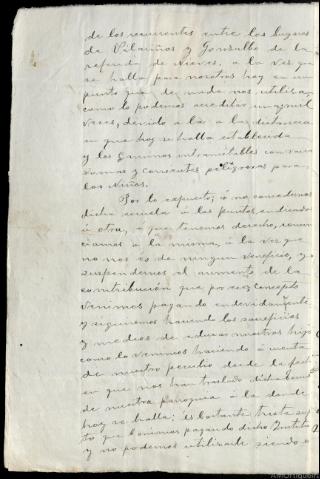 de los recurrentes entre los lugares
de Vilariños y Gonsulle de la
referida de Nieves, a la vez que
se halla para nosotros hoy en un
punto que de nada nos utiliza,
como lo podemos acreditar un y mil
veces, devido a la a la distancia
en que hoy se halla establecida
y los caminos intransitables con
y corrientes peligrosas para
los Niños.
Por lo expuesto; ó no concedernos
dicha escuela á los puntos
ú otra, á que tenemos derecho, renun
ciamos á la misma, á la vez que
no nos es de ningun veneficio, y
suspendernos el aumento de la
contribución que por ese concepto
venimos pagando endevidamente
y siguiremos haciendo los sacrificios
y medios de educar nuestros hijos
como lo venimos haciendo á cuenta
de nuestro peculio desde la fecha
en que nos han traslado dicha
de nuestra parroquia á la donde
hoy se halla; és bastante triste
to que venimos pagando dicho
y no podemos utilizarle siendo